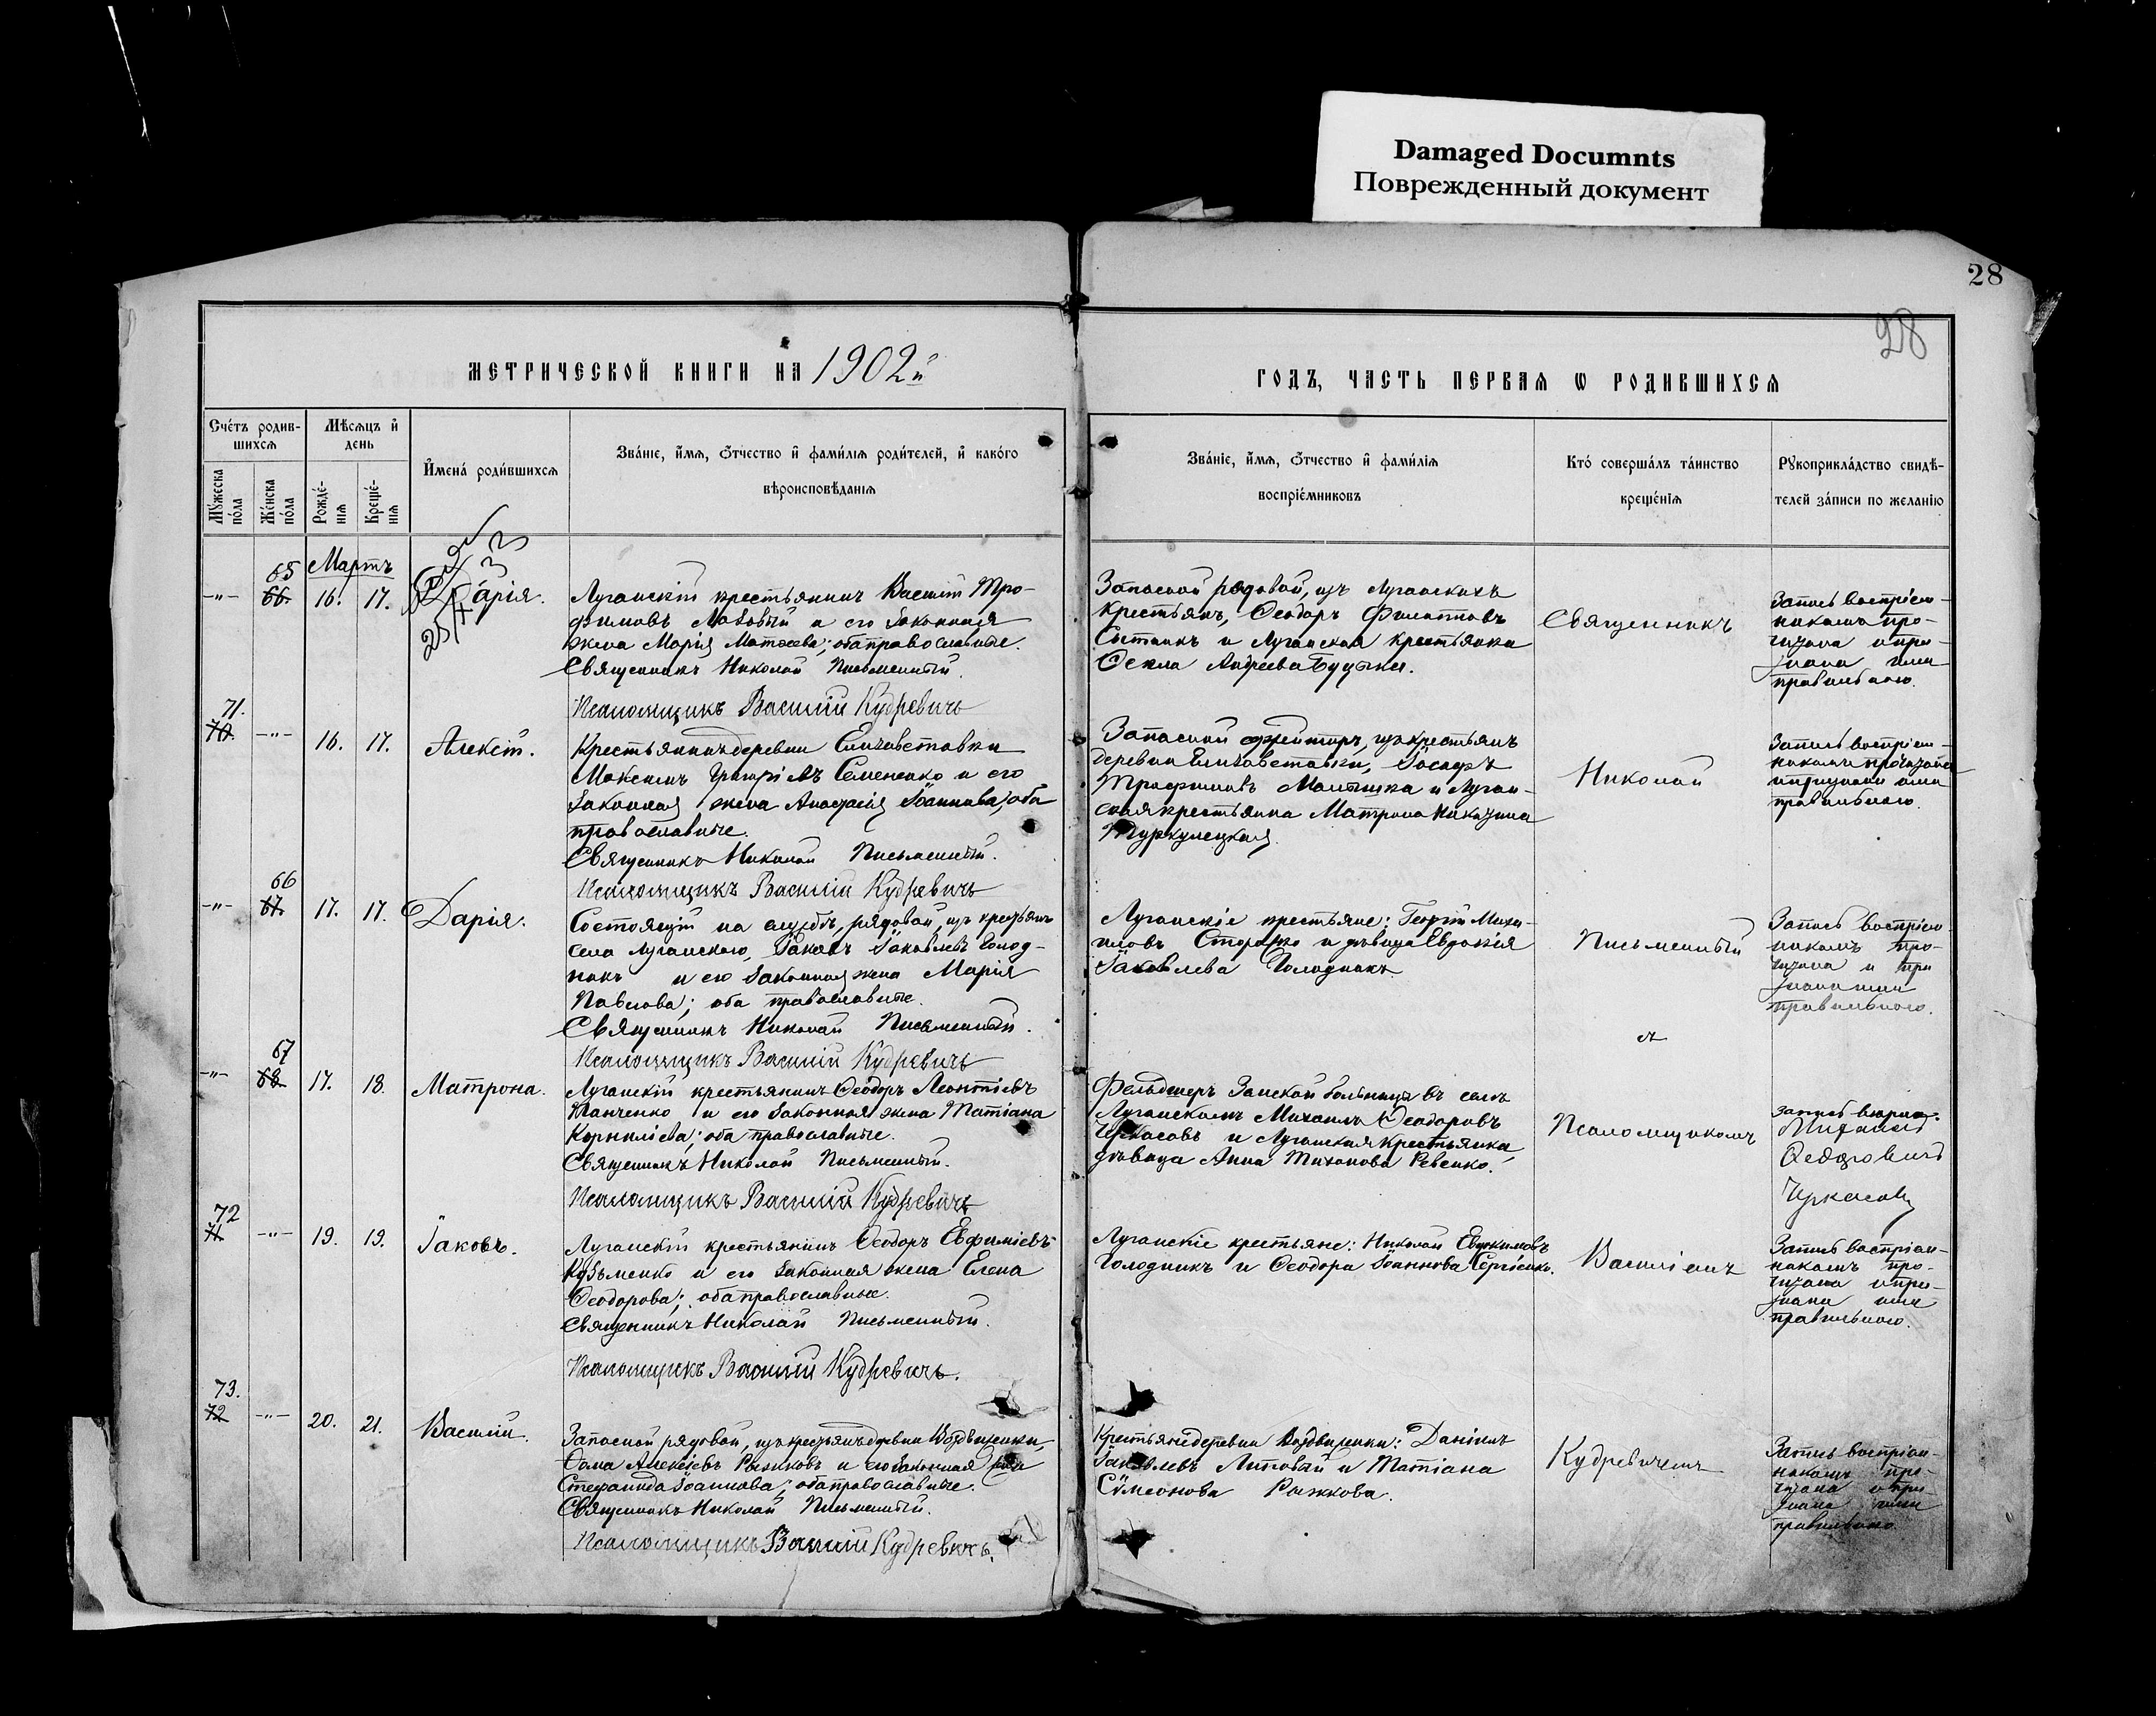 Damaged Documnts
Поврежденный документ
28
28
МЕТРИЧЕСКОЙ КНИГИ НА 1902й
ГОДЪ, ЧАСТЬ ПЕРВАЯ Ѡ РОДИВШИХСЯ
Счетъ родив-
шихся
Мѣсяцъ и
день
Мужеска
пола
Женска
пола
Рожде-
нія
Креще-
нія
Имена родившихся
Званіе, имя, отчество и фамилія родителей, и какого
вѣроисповѣданія
Званіе, имя, отчество и фамилія
воспріемниковъ
Кто совершалъ таинство
крещенія
Рукоприкладство свидѣ-
телей записи по желанію
Мартъ
65
-"- 66. 16. 17. Дарія.
Луганскій крестьянинъ Василій Тро-
фимовъ и его законная
жена Марія Матѳеева; оба православные.
Священникъ Николай Письменный.
Псаломщикъ Василій Кудревичъ
Запасной рядовой, изъ Луганскихъ
крестьянъ, Ѳеодоръ Филипповъ
Сытникъ и Луганская крестьянка
Ѳекла Андреева
Священникъ
Запись воспріем-
никамъ про-
читана и при-
знана ими
правильною.
71.
70. -"- 16. 17. Алексій.
Крестьянинъ деревни Елисаветовки
Максимъ Григоріевъ Семененко и его
законная жена Анастасія Іоаннова; оба
православные.
Священникъ Николай Письменный.
Псаломщикъ Василій Кудревичъ
Запасной ефрейторъ, изъ крестьянъ
деревни Елисаветовки, Іосифъ
Трофимовъ и Луган-
ская крестьянка Матрона
Туркулецкая.
Николай
Запись воспріем-
никамъ прочитана
и признана ими
правильною.
66
-"- 67. 17. 17. Дарія.
Состоящій на службѣ, рядовой, изъ крестьянъ
села Луганскаго, Іаковъ Іаковлевъ Голод-
никъ и его законная жена Марія
Павлова; оба православные.
Священникъ Николай Письменный.
Псаломщикъ Василій Кудревичъ
Луганскіе крестьяне: Георгій Миха-
иловъ Сторожко и дѣвица Евдокія
Іаковлева Голодникъ.
Письменный
Запись воспріем-
никамъ про-
читана и при
знана ими
правильною.
съ
67
-"- 68. 17. 18. Матрона.
Луганскій крестьянинъ Ѳеодоръ Леонтіевъ
Ганченко и его законная жена Татіана
Корниліева; оба православные.
Священникъ Николай Письменный.
Псаломщикъ Василій Кудревичъ
Фельдшеръ Земской больницы въ селѣ
Луганскомъ Михаилъ Ѳеодоровъ
Черкасовъ и Луганская крестьянка,
дѣвица Анна Тихонова Ревенко.
Псаломщикомъ
Михаилъ
Ѳедоровичъ
Черкасовъ
72
71. -"- 19. 19. Іаковъ.
Луганскій крестьянинъ Ѳеодоръ Евфиміевъ
Кузьменко и его законная жена Елена
Ѳеодорова; оба православные.
Священникъ Николай Письменный.
Псаломщикъ Василій Кудревичъ.
Луганскіе крестьяне: Николай Евдокимовъ
Голодникъ и Ѳеодора Іоаннова Сергіенко.
Василіемъ
Запись воспріем-
никамъ про-
читана и при-
знана ими
правильною.
73.
72 -"- 20. 21. Василій.
Запасной рядовой, изъ крестьянъ деревни Воздвиженки,
Ѳома Алексіевъ Рыжковъ и его законная жена
Стефанида Іоаннова; оба православные.
Священникъ Николай Письменный.
Псаломщикъ Василій Кудревичъ.
Крестьяне деревни Воздвиженки: Даніилъ
Іаковлевъ Липовый и Татіана
Сѵмеонова Рыжкова.
Кудревичемъ
Запись воспріем-
никамъ про-
читана и при-
знана ими
правильною.